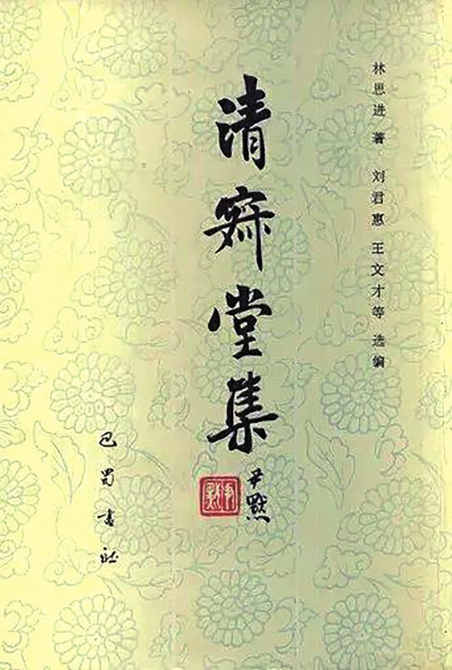 林思进 著 刘君惠 王文才等 选编
清寂堂集
尹默
巴蜀书社